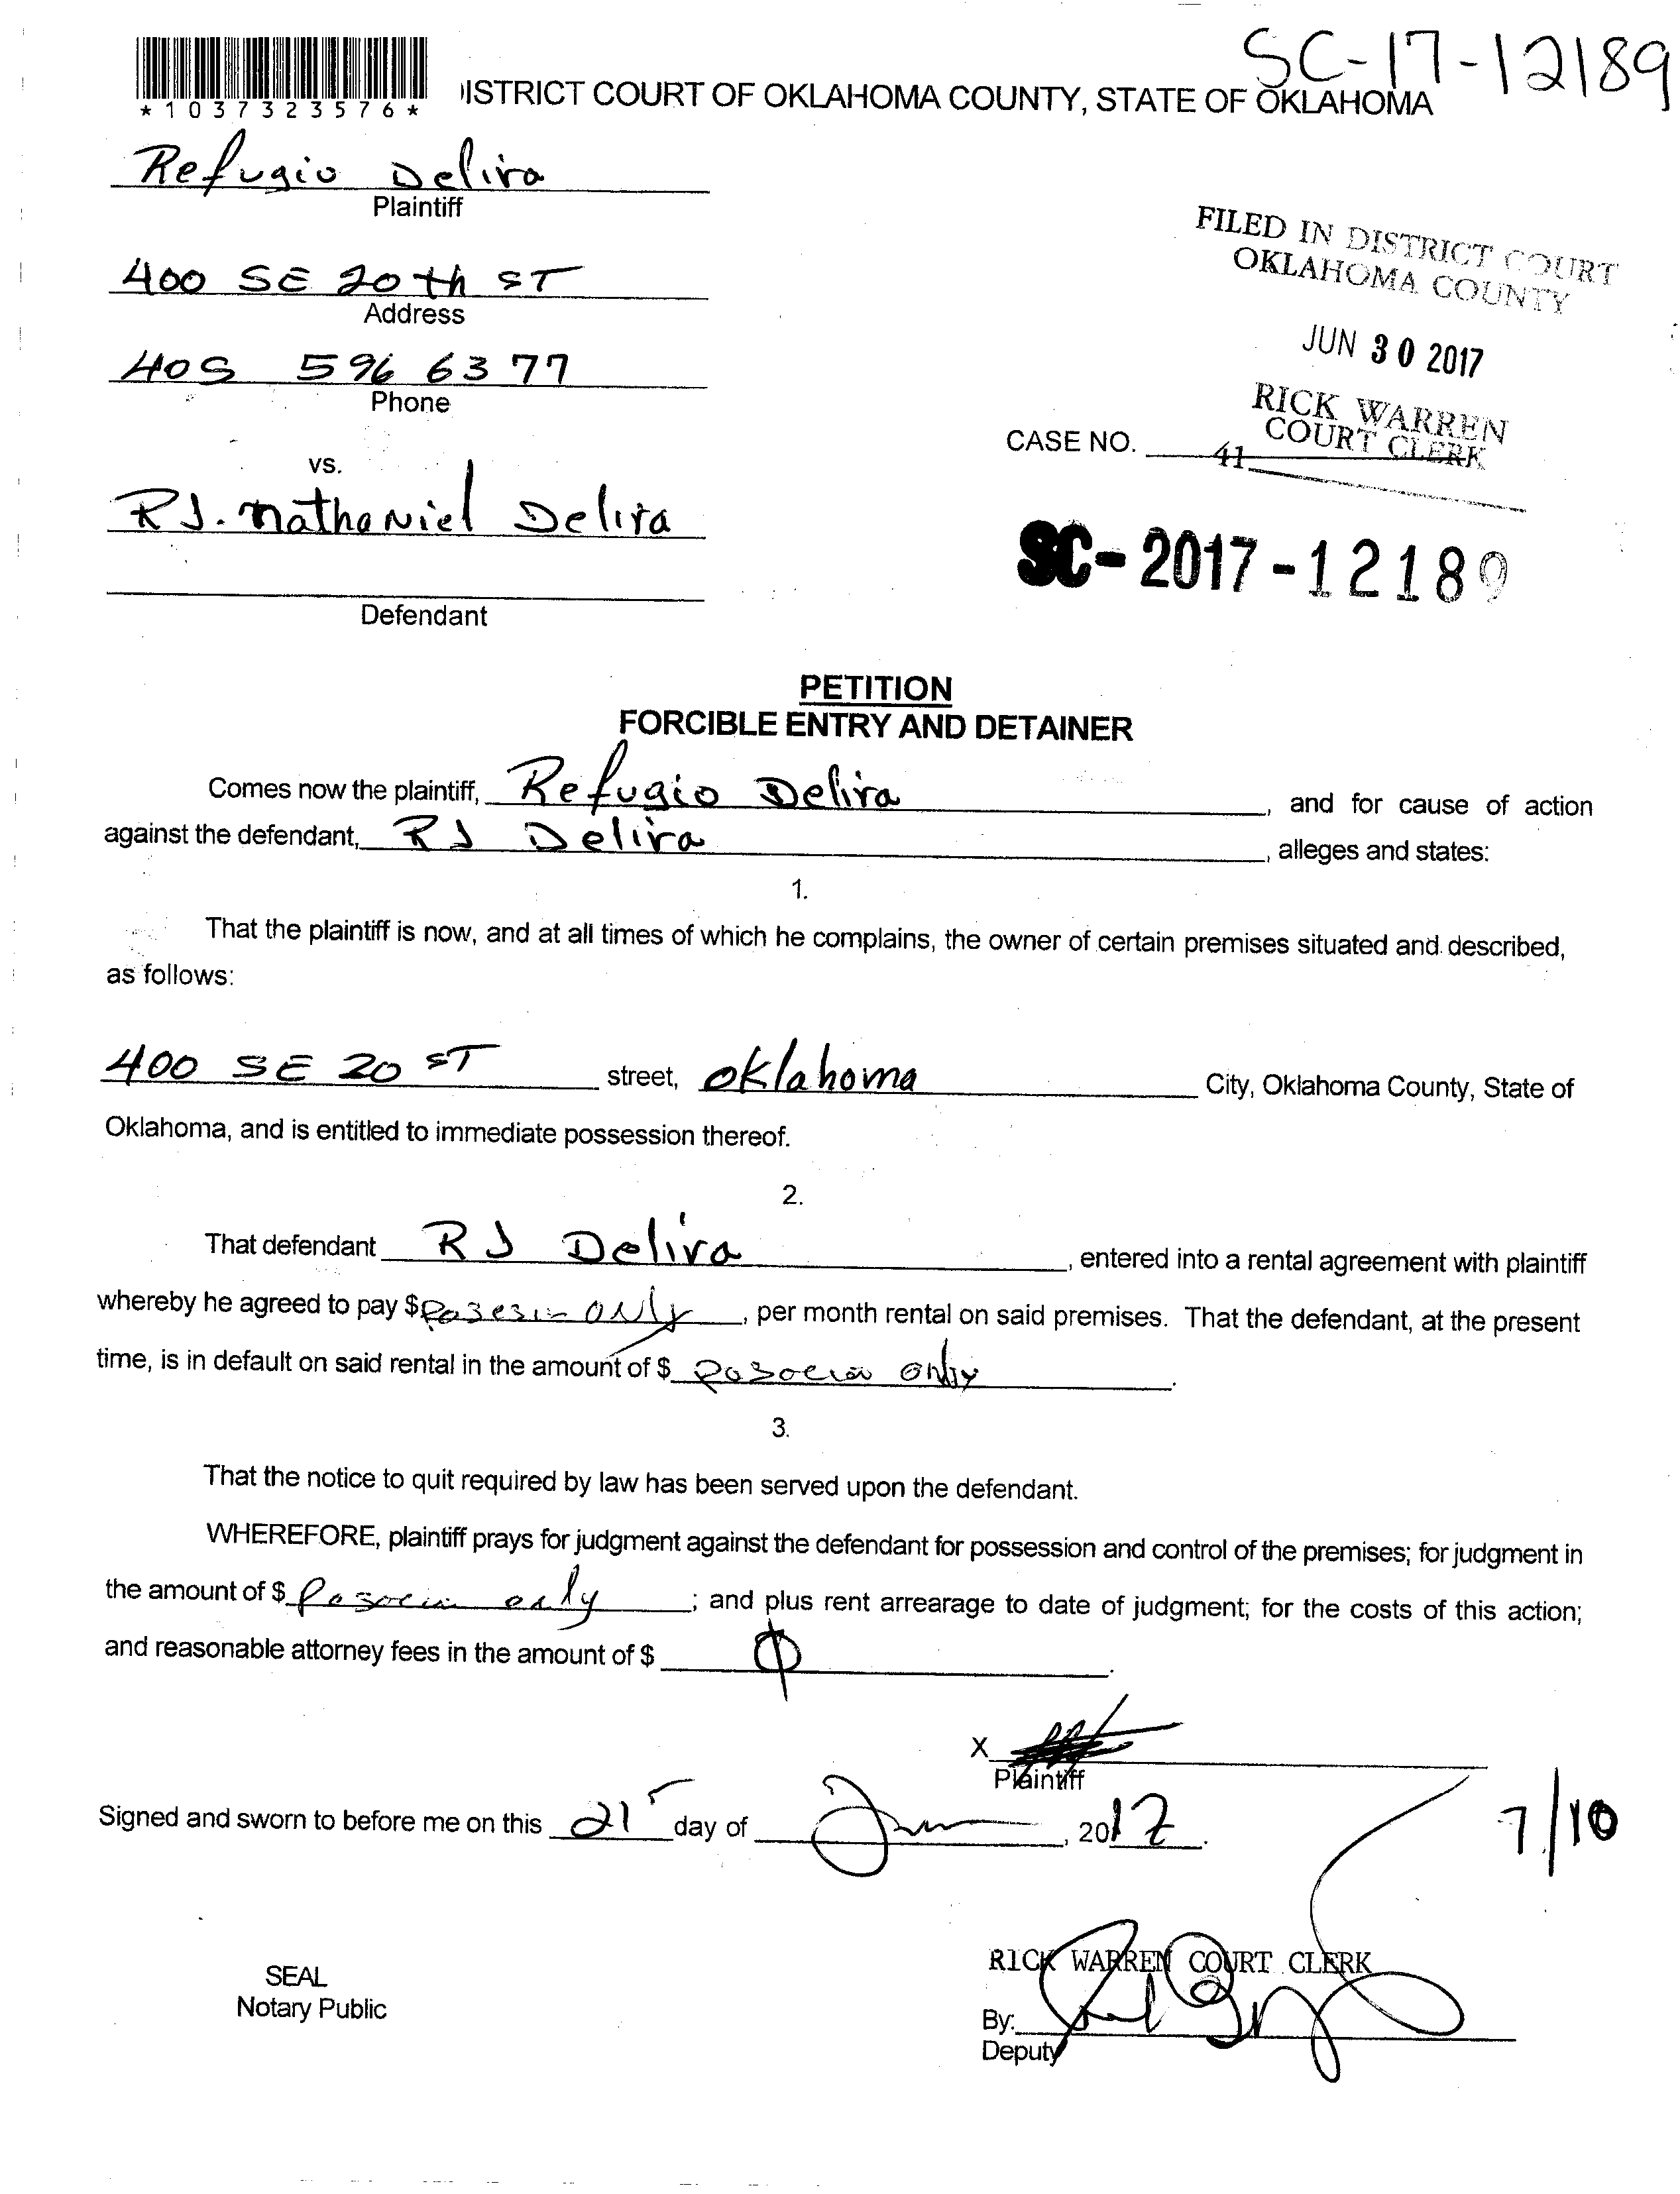 SC-17-12189
*1037323576*
ISTRICT COURT OF OKLAHOMA COUNTY, STATE OF OKLAHOMA
Refugio Delira
Plaintiff
400 SE 20th ST
Address
405 596 6377
Phone
vs.
RJ. Nathaniel Delira
Defendant
FILED IN DISTRICT COURT
OKLAHOMA COUNTY
JUN 30 2017
RICK WARREN
COURT CLERK
CASE NO.
41
SC-2017-12189
PETITION
FORCIBLE ENTRY AND DETAINER
Comes now the plaintiff, Refugio Delira, and for cause of action
against the defendant, RJ Delira, alleges and states:
1.
That the plaintiff is now, and at all times of which he complains, the owner of certain premises situated and described,
as follows:
400 SE 20 ST street, Oklahoma City, Oklahoma County, State of
Oklahoma, and is entitled to immediate possession thereof.
2.
That defendant RJ Delira, entered into a rental agreement with plaintiff
whereby he agreed to pay $ only, per month rental on said premises. That the defendant, at the present
time, is in default on said rental in the amount of $ only.
3.
That the notice to quit required by law has been served upon the defendant.
WHEREFORE, plaintiff prays for judgment against the defendant for possession and control of the premises; for judgment in
the amount of $ only; and plus rent arrearage to date of judgment; for the costs of this action;
and reasonable attorney fees in the amount of $ Φ.
X
Plaintiff
Signed and sworn to before me on this 21 day of Jun, 2017.
7/10
SEAL
Notary Public
RICK WARREN COURT CLERK
By:
Deputy